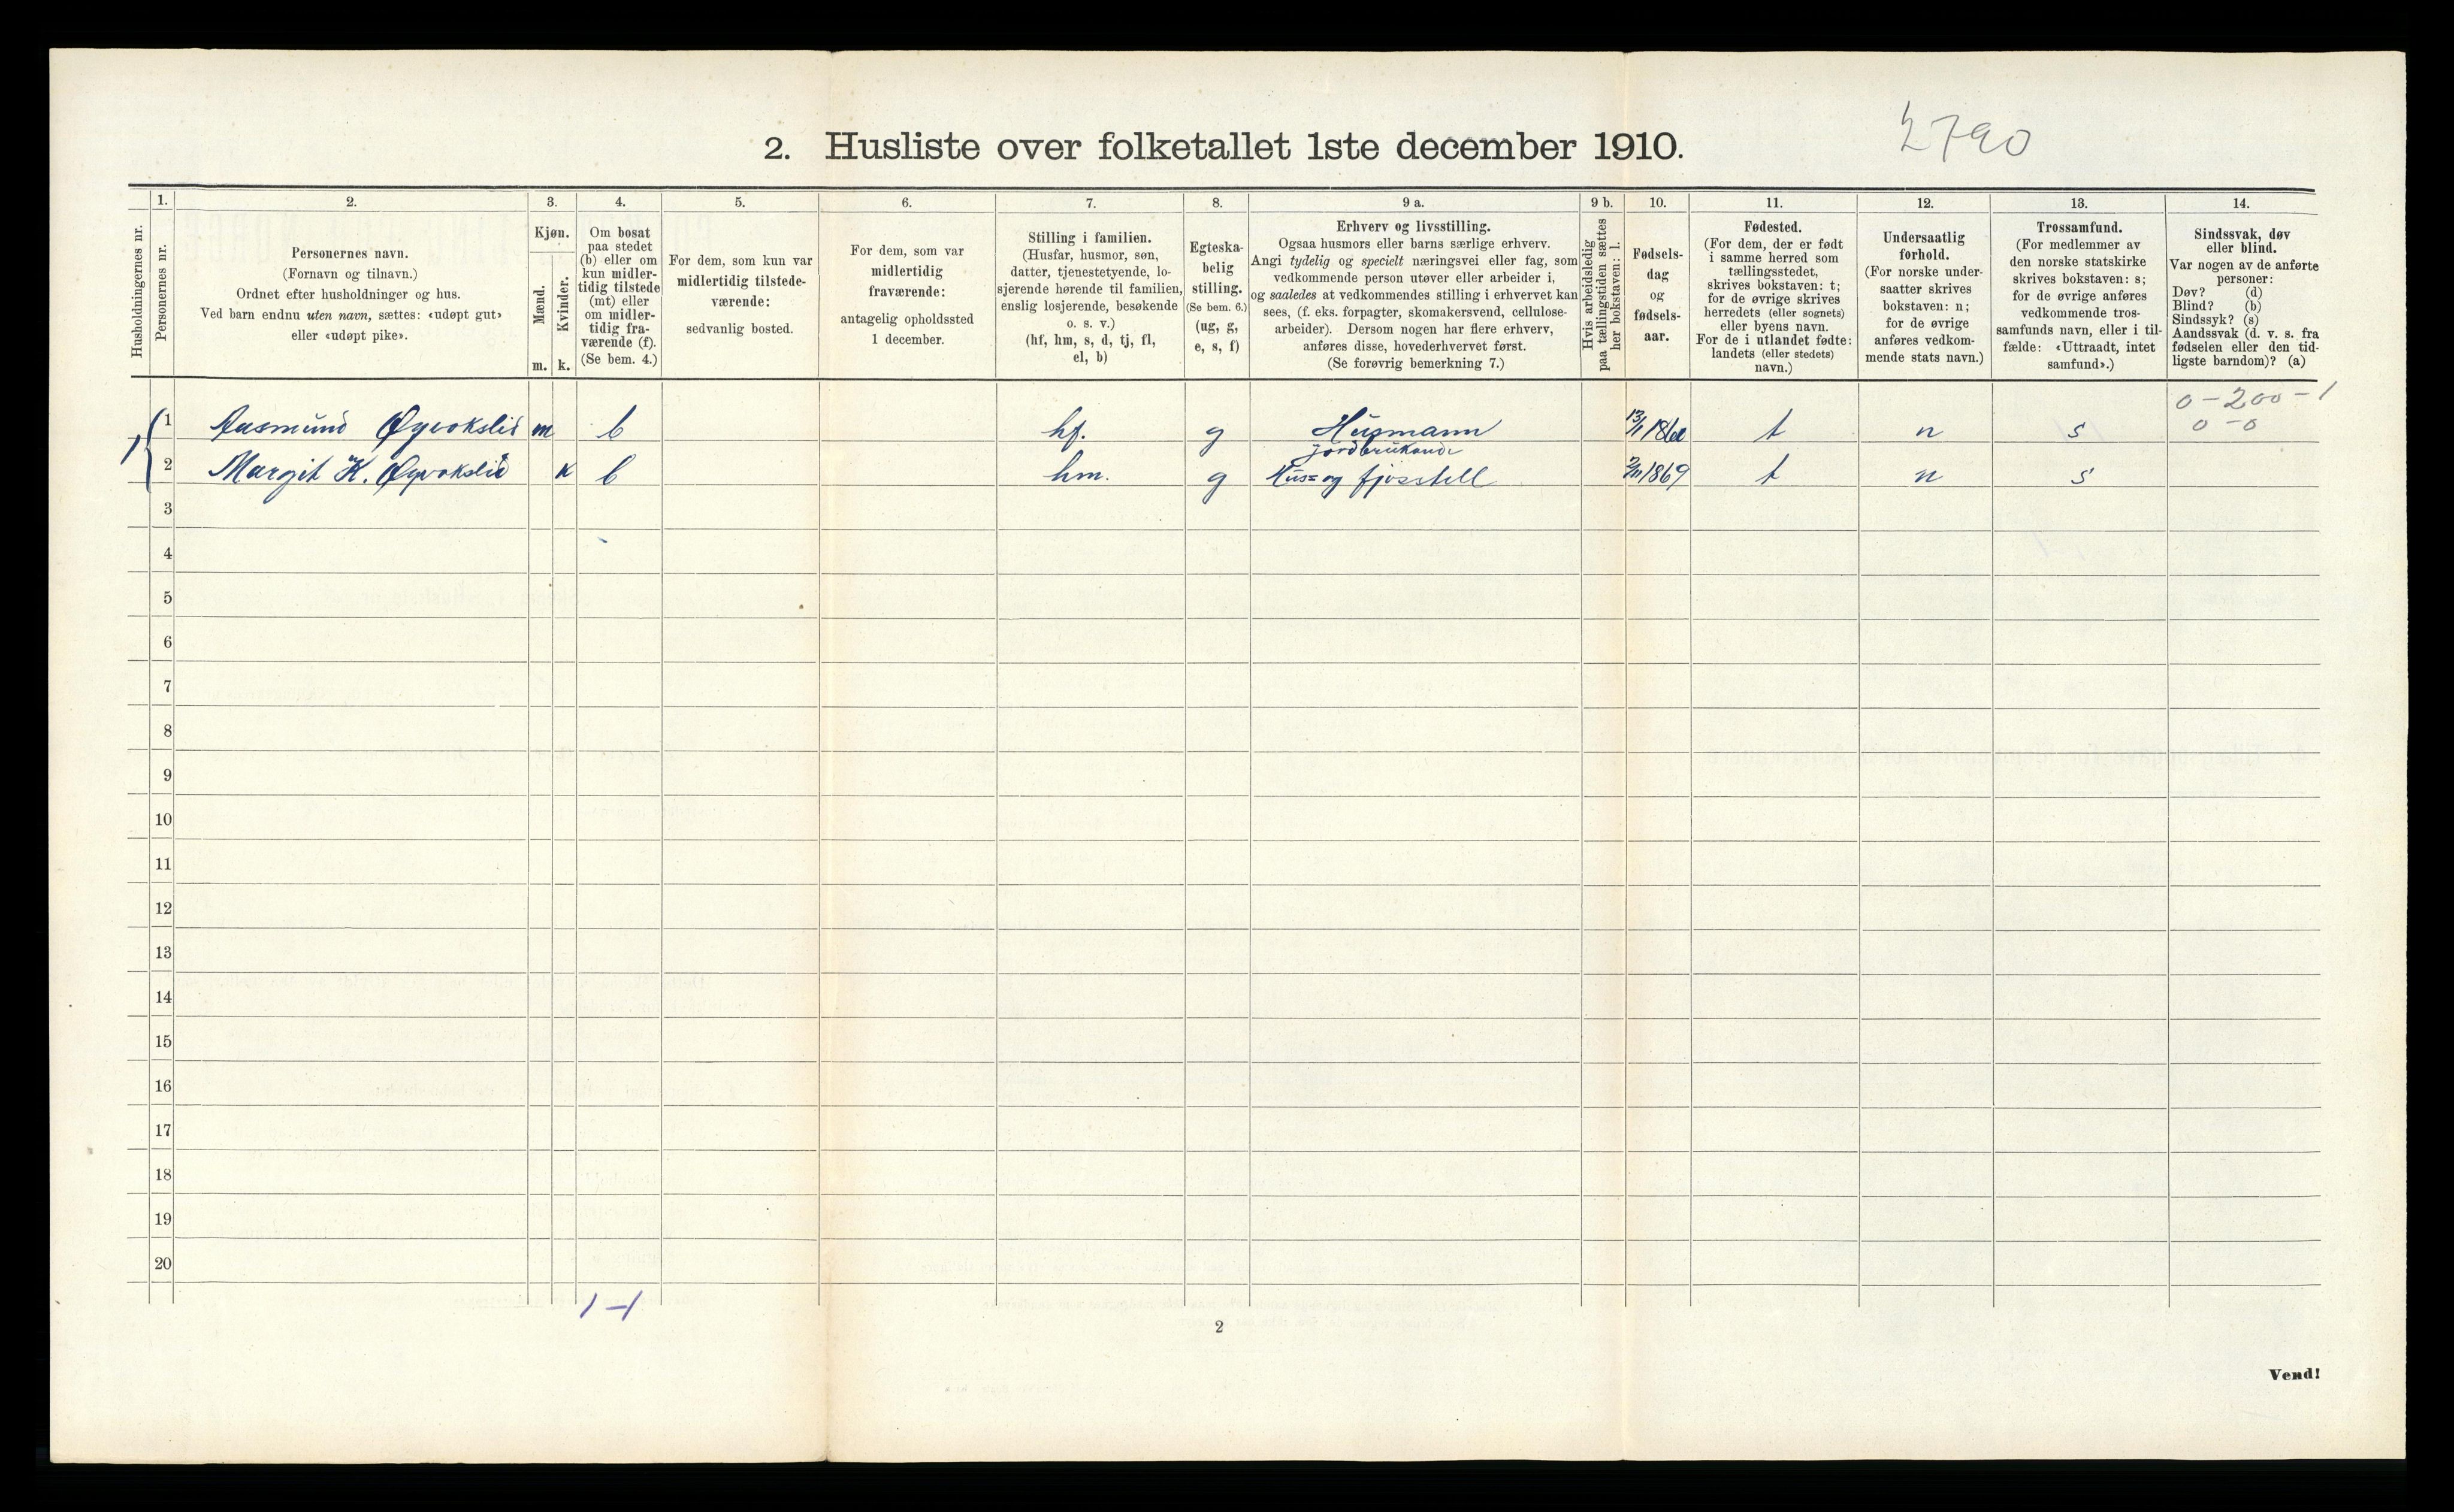 2. Husliste over folketallet 1ste december 1910.
2790
1. 2. 3. 4. 5. 6. 7. 8. 9 a. 9 b. 10. 11. 12. 13. 14.
Husholdningernes nr.
Personernes nr.
Personernes navn.
(Fornavn og tilnavn.)
Ordnet efter husholdninger og hus.
Ved barn endnu uten navn, sættes: «udøpt gut»
eller «udøpt pike».
Kjøn.
Mænd.
m.
Kvinder.
k.
Om bosat
paa stedet
(b) eller om
kun midler-
tidig tilstede
(mt) eller
om midler-
tidig fra-
værende (f).
(Se bem. 4.)
For dem, som kun var
midlertidig tilstede-
værende:
sedvanlig bosted.
For dem, som var
midlertidig
fraværende:
antagelig opholdssted
1 december.
Stilling i familien.
(Husfar, husmor, søn,
datter, tjenestetyende, lo-
sjerende hørende til familien,
enslig losjerende, besøkende
o. s. v.)
(hf, hm, s, d, tj, fl,
el, b)
Egteska-
belig
stilling.
(Se bem. 6.)
(ug, g,
e, s, f)
Erhverv og livsstilling.
Ogsaa husmors eller barns særlige erhverv.
Angi tydelig og specielt næringsvei eller fag, som
vedkommende person utøver eller arbeider i,
og saaledes at vedkommendes stilling i erhvervet kan
sees, (f. eks. forpagter, skomakersvend, cellulose-
arbeider). Dersom nogen har flere erhverv,
anføres disse, hovederhvervet først.
(Se forøvrig bemerkning 7.)
Hvis arbeidsledig
paa tællingstiden sættes
her bokstaven: l.
Fødsels-
dag
og
fødsels-
aar.
Fødested.
(For dem, der er født
i samme herred som
tællingsstedet,
skrives bokstaven: t;
for de øvrige skrives
herredets (eller sognets)
eller byens navn.
For de i utlandet fødte:
landets (eller stedets)
navn.)
Undersaatlig
forhold.
(For norske under-
saatter skrives
bokstaven: n;
for de øvrige
anføres vedkom-
mende stats navn.)
Trossamfund.
(For medlemmer av
den norske statskirke
skrives bokstaven: s;
for de øvrige anføres
vedkommende tros-
samfunds navn, eller i til-
fælde: «Uttraadt, intet
samfund».)
Sindssvak, døv
eller blind.
Var nogen av de anførte
personer:
Døv? (d)
Blind? (b)
Sindssyk? (s)
Aandssvak (d. v. s. fra
fødselen eller den tid-
ligste barndom)? (a)
0 - 200 - 1
0 - 0
1 1 Aasmund Øyvokslid m b hf. g Husmann t n s
jordbrukande
2 Margit K. Øyvokslid k b hm. g Hus= og fjosstell 1869 t n s
3
4
5
6
7
8
9
10
11
12
13
14
15
16
17
18
19
20
1-1
2
Vend!